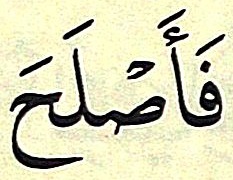 فَأَصْلَحَ